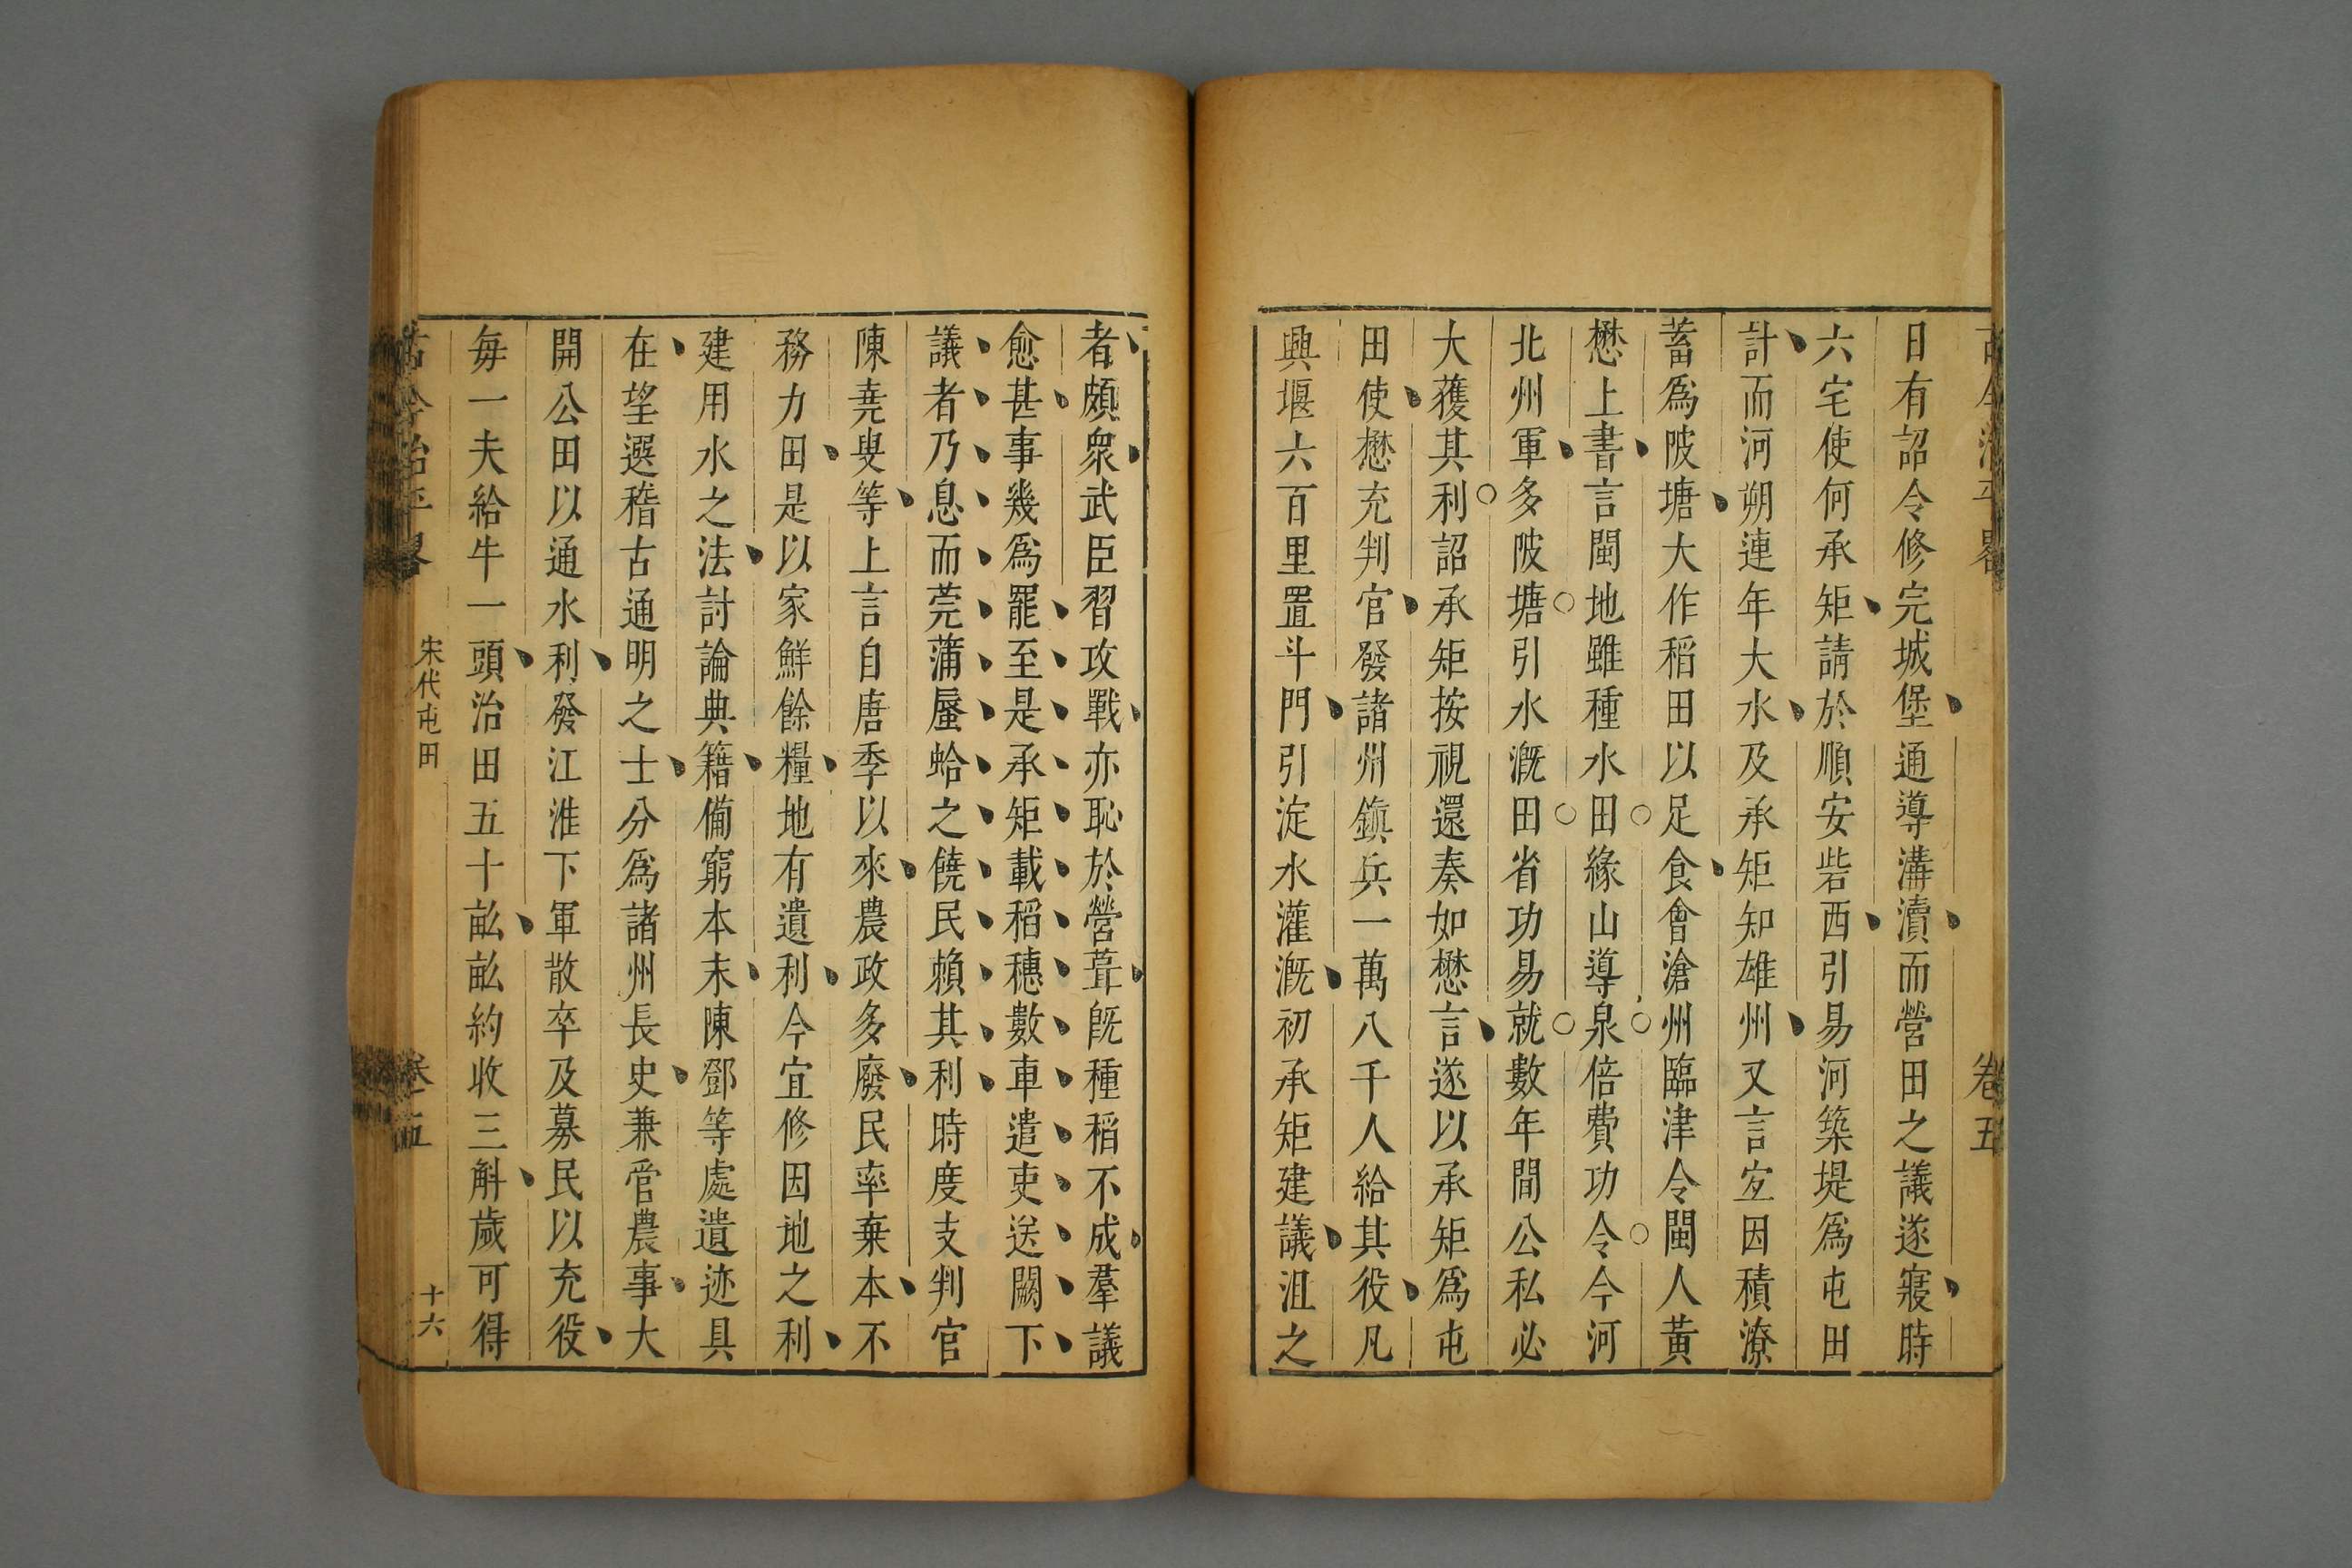 古今治平畧
卷五
日有詔令修完城堡通導溝瀆而營田之議遂寢時
六宅使何承矩請於順安砦西引易河築堤爲屯田
計而河朔連年大水及承矩知雄州又言宐因積潦
蓄爲陂塘大作稻田以足食會滄州臨津令閩人黃
懋上書言閩地雖種水田緣山導泉倍費功令今河
北州軍多陂塘引水漑田省功易就數年間公私必
大獲其利詔承矩按視還奏如懋言遂以承矩爲屯
田使懋充判官發諸州鎮兵一萬八千人給其役凡
興堰六百里置斗門引淀水灌漑初承矩建議沮之
者頗衆武臣習攻戰亦恥於營葺旣種稻不成羣議
愈甚事幾爲罷至是承矩載稻穗數車遣吏送闕下
議者乃息而莞蒲蜃蛤之饒民賴其利時度支判官
陳堯叟等上言自唐季以來農政多廢民率棄本不
務力田是以家鮮餘糧地有遺利今宜修因地之利
建用水之法討論典籍備窮本末陳鄧等處遺迹具
在望選稽古通明之士分爲諸州長史兼管農事大
開公田以通水利發江淮下軍散卒及募民以充役
每一夫給牛一頭治田五十畝畝約收三斛歲可得
古今治平畧
宋代屯田
卷五
十六